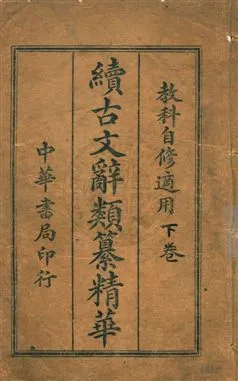 教科自修適用下卷
續古文辭類纂精華
中華書局印行